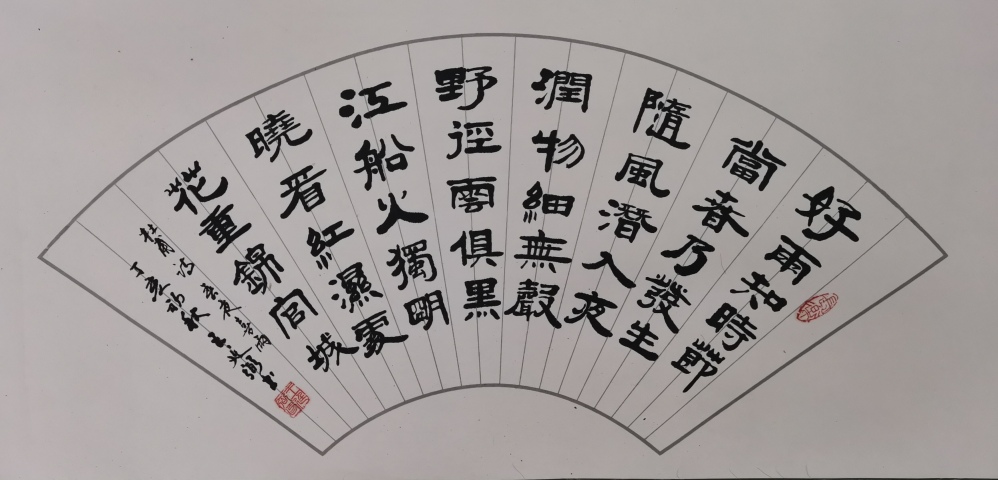 好雨知時節
當春乃發生
隨風潛入夜
潤物細無聲
野徑雲俱黑
江船火獨明
曉看紅濕處
花重錦官城
杜甫詩春夜喜雨
丁亥初秋王延書